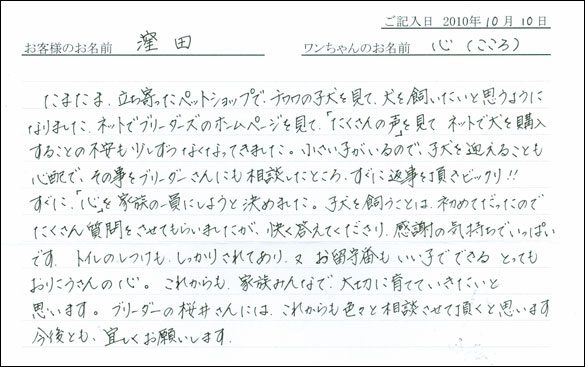 ご記入日 2010年10月10日
お客様のお名前 窪田 ワンちゃんのお名前 心(こころ)
たまたま、立ち寄ったペットショップで、チワワの子犬を見て、犬を飼いたいと思うように
なりました。ネットでブリーダーズのホームページを見て、「たくさんの声」を見て ネットで犬を購入
することの不安も少しずつなくなってきました。小さい子がいるので、子犬を迎えることも
心配で、その事をブリーダーさんにも相談したところ、すぐに返事を頂きビックリ!!
すぐに、「心」を家族の一員にしようと決めました。子犬を飼うことは、初めてだったので
たくさん質問をさせてもらいましたが、快く答えてくださり、感謝の気持ちでいっぱい
です。トイレのしつけも、しっかりされてあり、又 お留守番も いい子でできる とっても
おりこうさんの心。これからも、家族みんなで、大切に育てていきたいと
思います。ブリーダーの桜井さんには、これからも色々と相談させて頂くと思います
今後とも、宜しくお願いします。